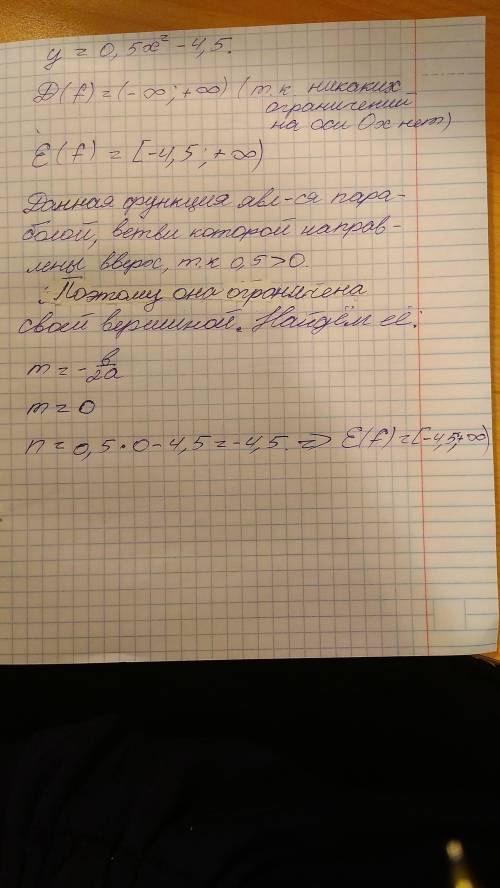 y = 0,5x² - 4,5.
D(f) = (-∞; +∞) (т.к. никаких
ограничений
на оси Ox нет)
E(f) = [-4,5; +∞)
Данная функция явл-ся пара-
болой, ветви которой направ-
лены вверх, т.к 0,5 > 0.
Поэтому она ограничена
своей вершиной. Найдём её:
m = -в/2a
m = 0
n = 0,5 • 0 - 4,5 = -4,5. => E(f) = [-4,5;+∞)